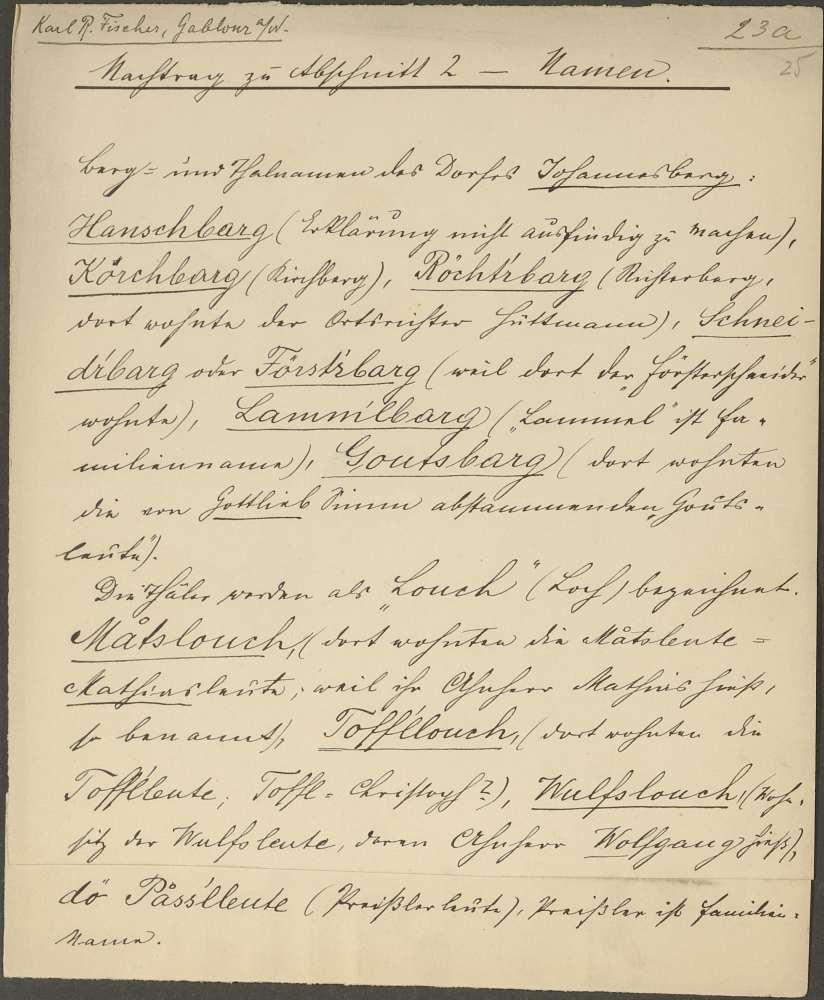 Karl R. Fischer, Gablonz a/N.
23a
25
Nachtrag zu Abschnitt 2 — Namen.
Berg- und Thalnamen des Dorfes Johannesberg:
Hanschbarg (Erklärung nicht ausfindig zu machen),
Körchbarg (Kirchberg), Röchtrbarg (Richterberg,
dort wohnte der Ortsrichter Hüttmann), Schnei-
drbarg oder Förstrbarg (weil dort der „Försterschneider"
wohnte), Lamm'lbarg („Lammel" ist Fa-
milienname), Goutsbarg (dort wohnten
die von Gottlieb Simm abstammenden „Gouts-
leute").
Die Thäler werden als „Louch" (Loch) bezeichnet.
Måtslouch, (dort wohnten die Måtsleute =
Mathiasleute, weil ihr Ahnherr Mathias hieß,
so benannt), Toff'llouch, (dort wohnten die
Toff'lleute; Toffl = Christoph?), Wulfslouch, (Wohn-
sitz der Wulfsleute, deren Ahnherr Wolfgang hieß),
dö Påss'lleute (Preißlerleute), Preißler ist Familien-
name.